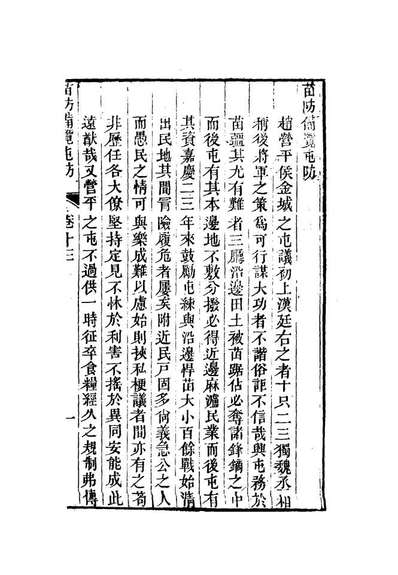 苗防備覽屯防
趙營平侯金城之屯議初上漢廷右之者十只二三獨魏丞相
稱後將軍之策爲可行謀大功者不諧俗詎不信哉興屯務於
苗疆其尤有難者三廳沿邊田土被苗踞佔必奪諸鋒鏑之中
而後屯有其本邊地不敷分撥必得近邊麻瀘民業而後屯有
其資嘉慶二三年來鼓勵屯練與沿邊悍苗大小百餘戰始清
出民地其間冒險履危者屢矣附近民戶固多尙義急公之人
而愚民之情可與樂成難以慮始則挾私梗議者間亦有之苟
非歷任各大僚堅持定見不怵於利害不搖於異同安能成此
遠猷哉又營平之屯不過供一時征卒食糧經久之規制弗傳
苗防備覽屯防
卷十三
一